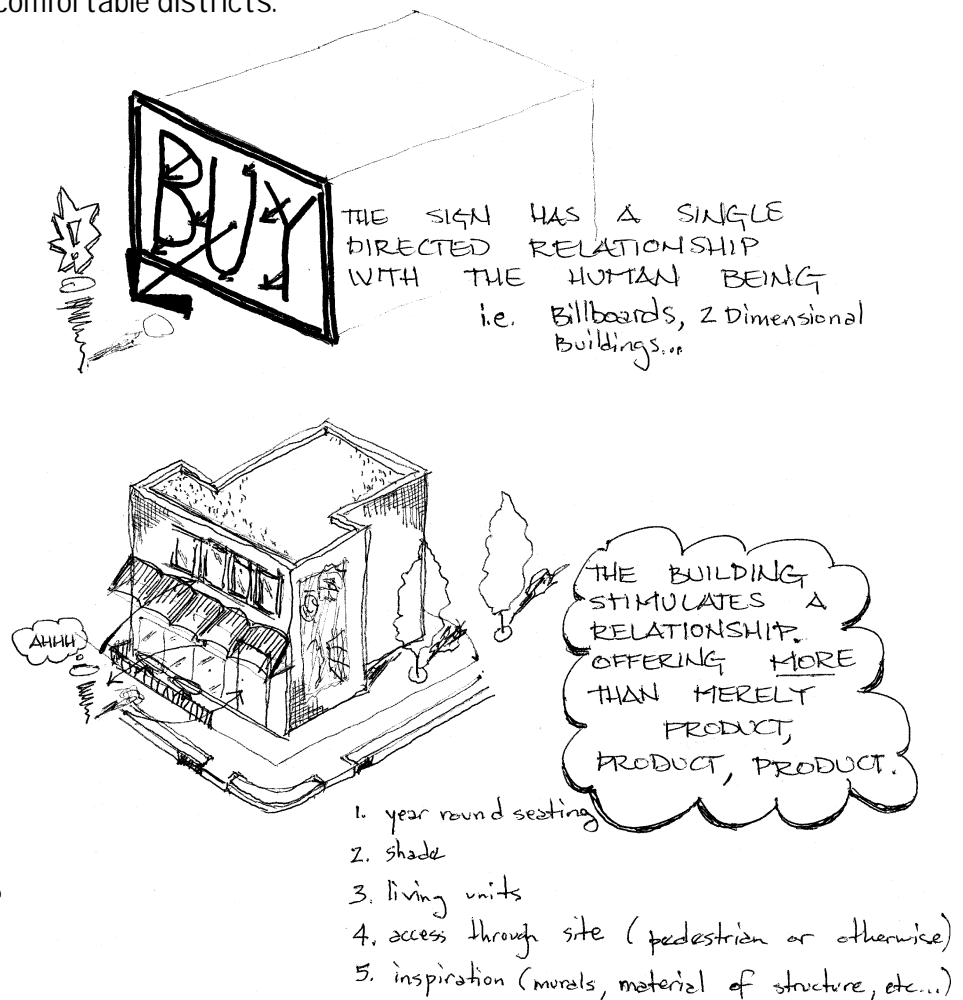 comfortable districts.
BUY
!
THE SIGN HAS A SINGLE
DIRECTED RELATIONSHIP
WITH THE HUMAN BEING
i.e. Billboards, 2 Dimensional
Buildings...
AHHH
THE BUILDING
STIMULATES A
RELATIONSHIP.
OFFERING MORE
THAN MERELY
PRODUCT,
PRODUCT, PRODUCT.
1. year round seating
2. shade
3. living units
4. access through site (pedestrian or otherwise)
5. inspiration (murals, material of structure, etc...)